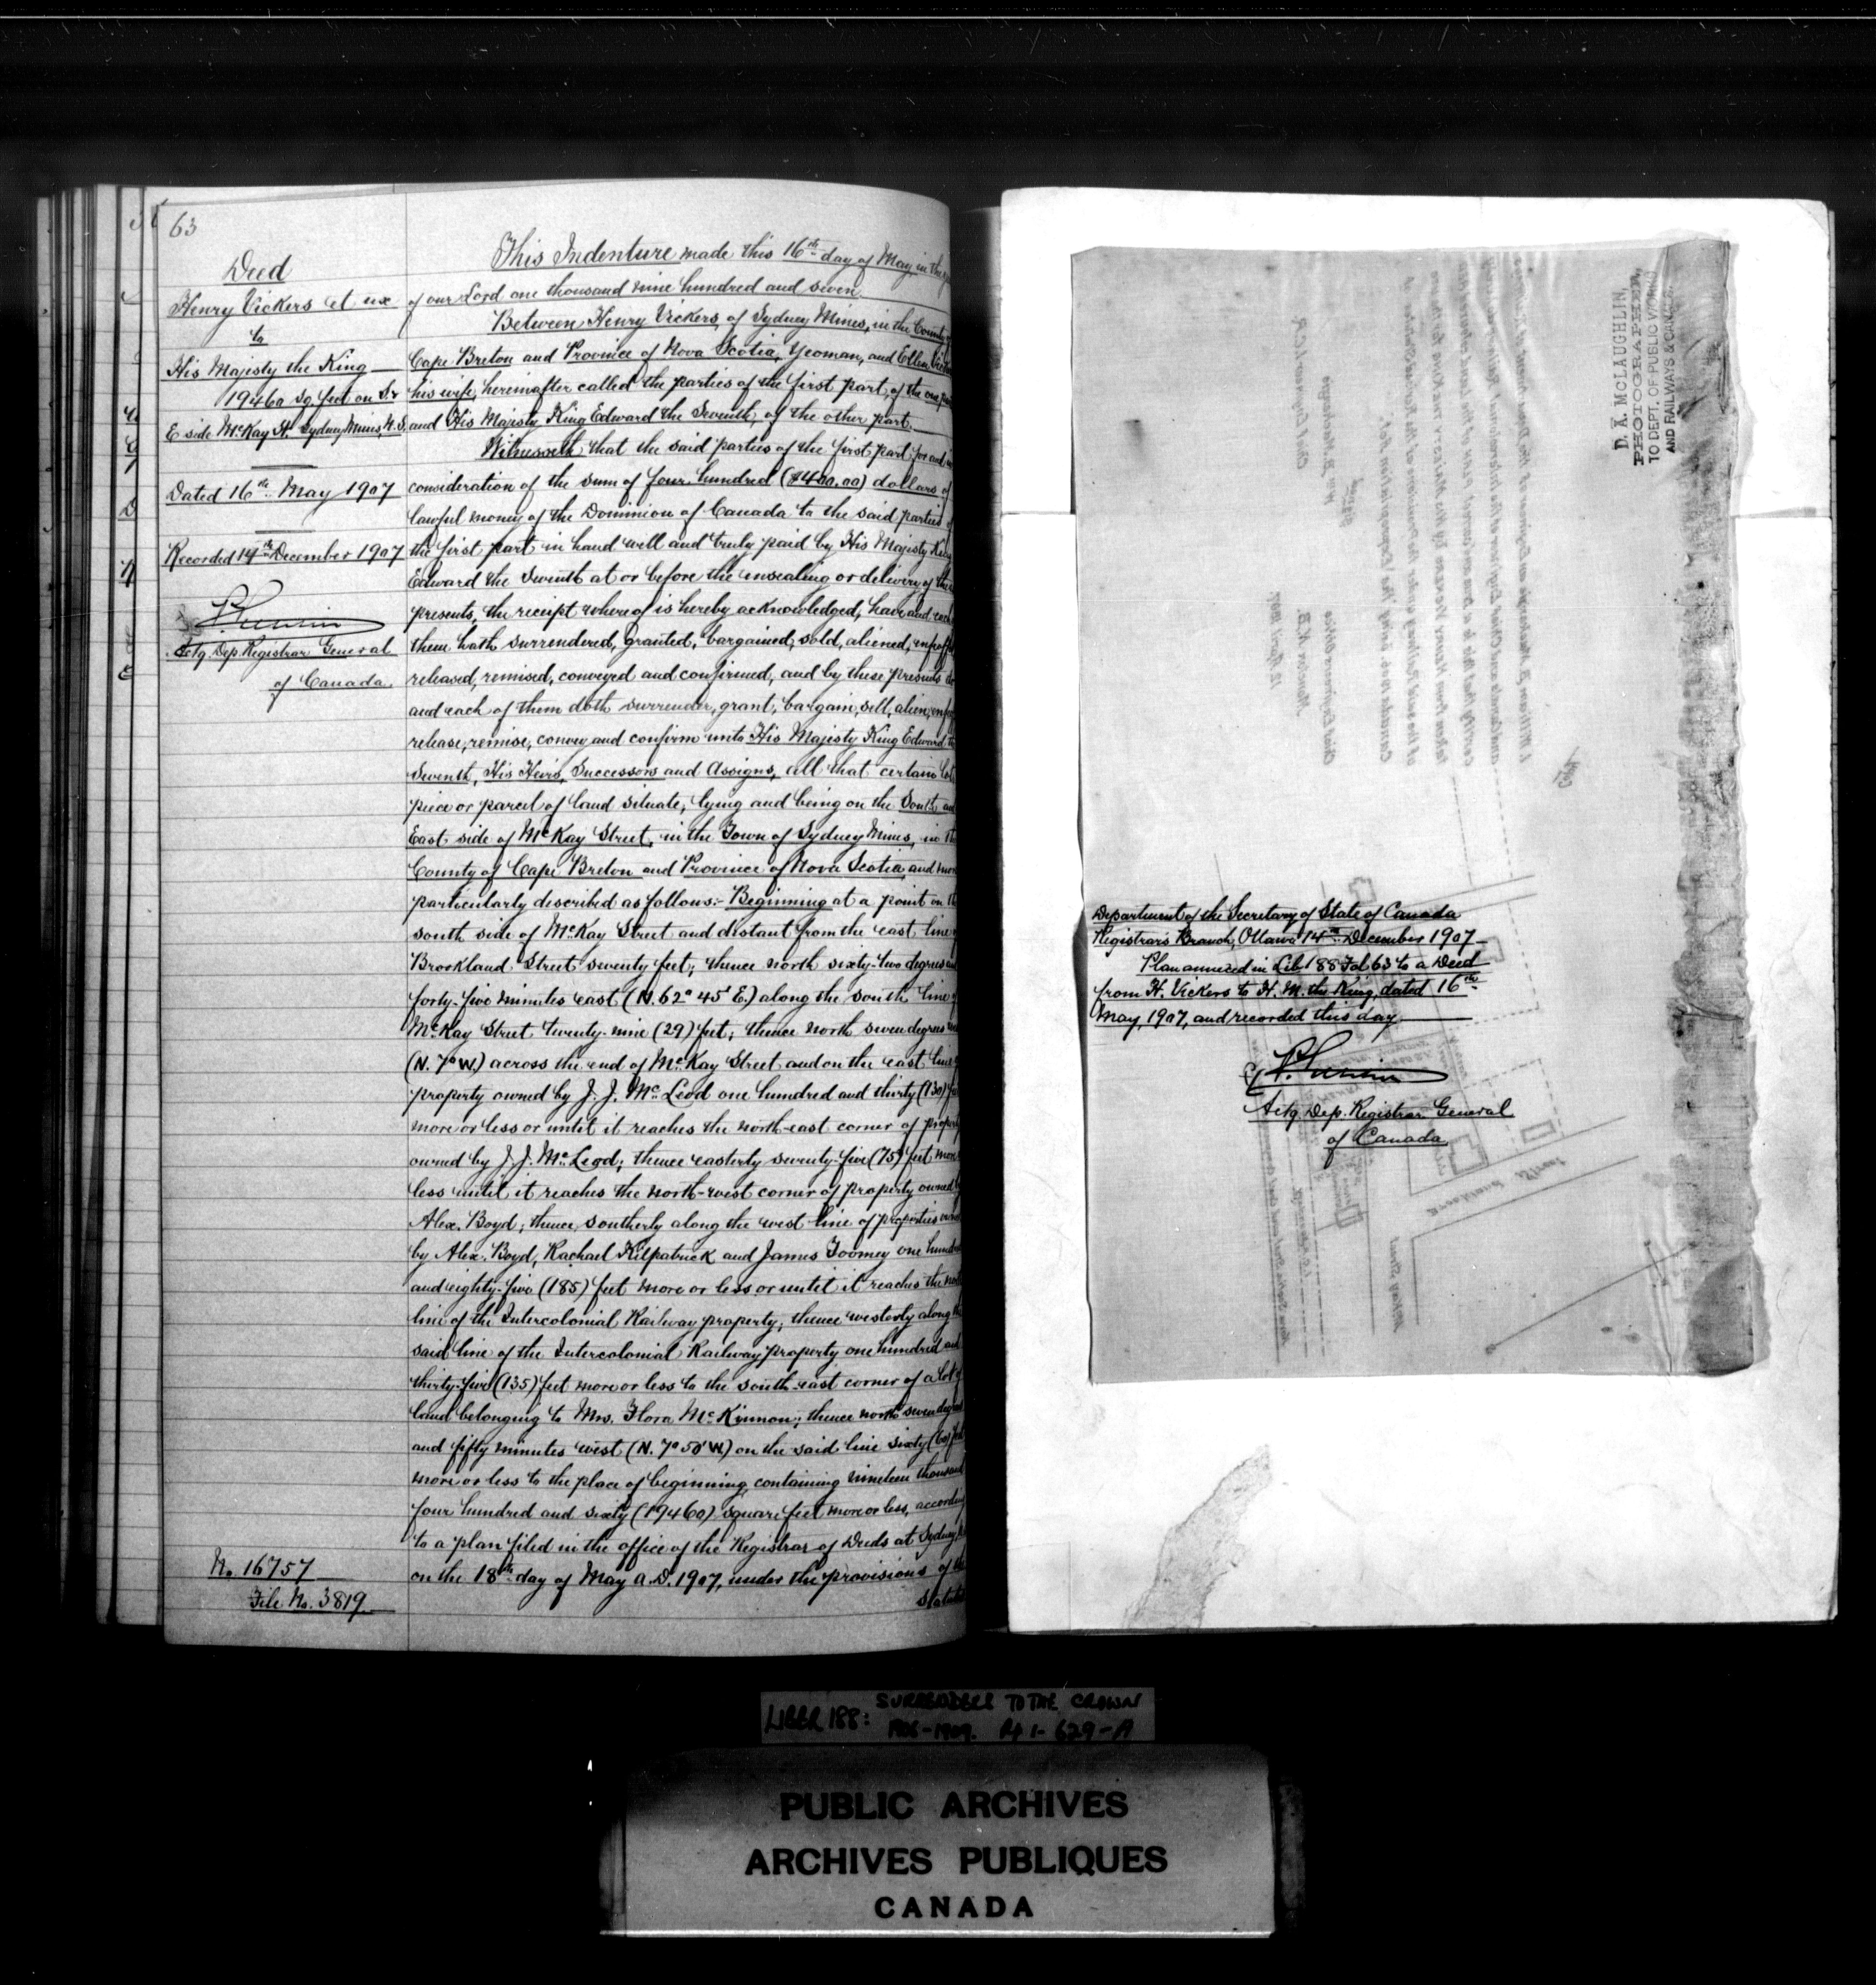 63
Deed
Henry Vickers et ux
to
His Majesty the King
19460 sq. feet on S. &
E side McKay St. Sydney Mines, N.S.
Dated 16th May 1907
Recorded 14th December 1907
Actg. Dep. Registrar General
of Canada.
No. 16757
File No. 3819
This Indenture made this 16th day of May, in the
of our Lord one thousand nine hundred and seven
Between Henry Vickers, of Sydney Mines, in the County
Cape Breton and Province of Nova Scotia, Yeoman, and Ellen
his wife, hereinafter called the parties of the first part, of the one
and His Majesty King Edward the Seventh, of the other part.
Witnesseth that the said parties of the first part for and
consideration of the sum of four hundred ($400.00) dollars of
lawful money of the Dominion of Canada to the said parties
the first part in hand well and truly paid by His Majesty King
Edward the Seventh at or before the ensealing or delivery of
presents, the receipt whereof is hereby acknowledged, have and each
them hath surrendered, granted, bargained, sold, aliened,
released, remised, conveyed and confirmed, and by these presents do
and each of them doth surrender, grant, bargain, sell, alien,
release, remise, convey and confirm unto His Majesty King Edward
Seventh, His Heirs, Successors and Assigns, all that certain lot
piece or parcel of land situate, lying and being on the South and
East side of McKay Street, in the Town of Sydney Mines, in
County of Cape Breton and Province of Nova Scotia, and more
particularly described as follows:- Beginning at a point on
south side of McKay Street and distant from the east line
Brookland Street seventy feet; thence north sixty-two degrees
forty-five minutes east (N. 62° 45' E.) along the south line
McKay Street twenty-nine (29) feet; thence north seven degrees
(N. 7° W.) across the end of McKay Street and on the east line
property owned by J. J. McLeod one hundred and thirty (130)
more or less or until it reaches the north-east corner of property
owned by J. J. McLeod; thence easterly seventy-five (75) feet more
less until it reaches the north-west corner of property owned
Alex. Boyd; thence southerly along the west line of properties
by Alex. Boyd, Rachael Kilpatrick and James Toomey one hundred
and eighty-five (185) feet more or less or until it reaches the
line of the Intercolonial Railway property; thence westerly along
said line of the Intercolonial Railway property one hundred and
thirty-five (135) feet more or less to the south-east corner of a lot
land belonging to Mrs. Flora McKinnon; thence north seven
and fifty minutes west (N. 7° 50' W.) on the said line sixty (60)
more or less to the place of beginning, containing nineteen thousand
four hundred and sixty (19460) square feet more or less, according
to a plan filed in the office of the Registrar of Deeds at Sydney
on the 18th day of May A.D. 1907, under the provisions of
D. A. McLAUGHLIN,
PHOTOGRAPHER,
TO DEPT. OF PUBLIC WORKS
AND RAILWAYS & CANALS.
Department of the Secretary of State of Canada
Registrar's Branch, Ottawa 14th December 1907
Plan annexed in Lib. 188 Fol. 63 to a Deed
from H. Vickers to H. M. the King, dated 16th
May, 1907, and recorded this day
Actg. Dep. Registrar General
of Canada
Brookland Street
LIBER 188: SURRENDERS TO THE CROWN
1906-1909. Pg 1-629-A
PUBLIC ARCHIVES
ARCHIVES PUBLIQUES
CANADA